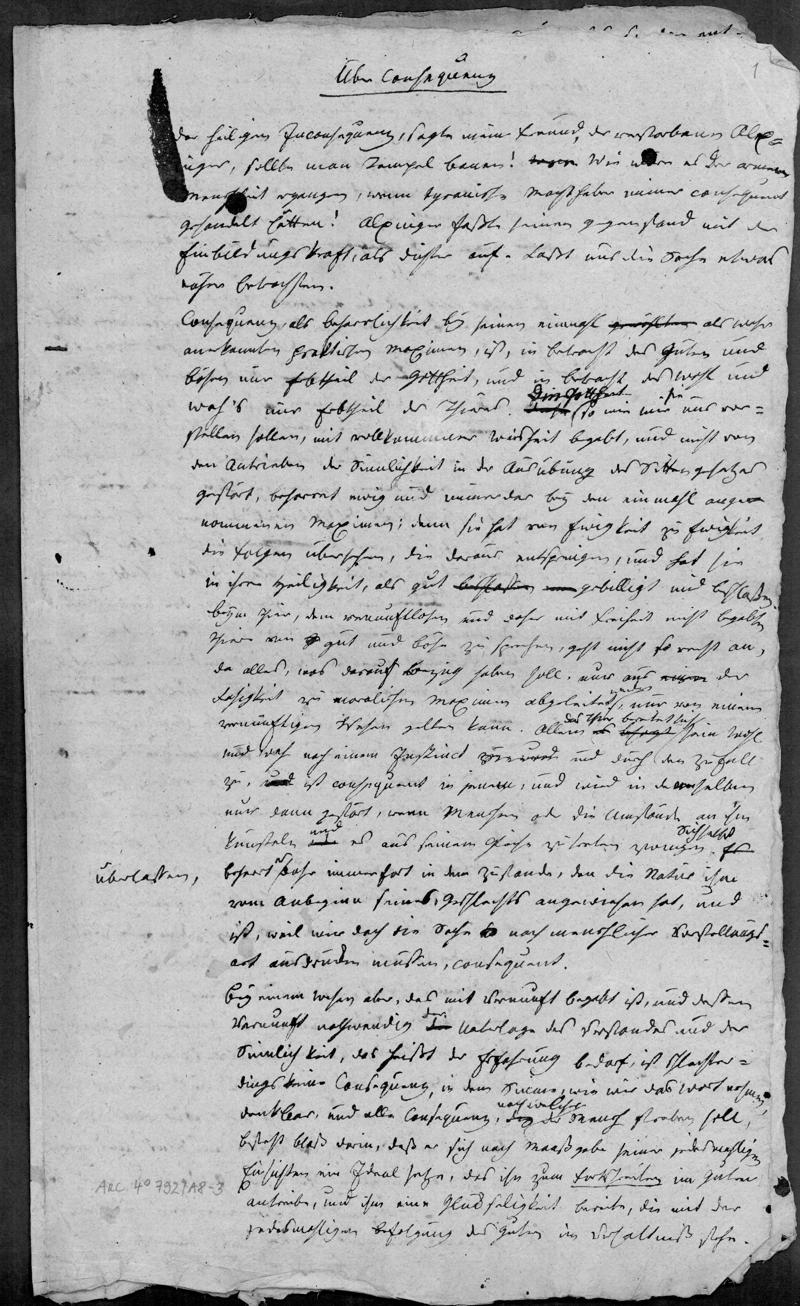 1
Über Consequenz
Der heiligen Inconsequenz, sagte mein Freund, der verstorbene Alx=
inger, sollte man Tempel bauen! Wie wäre es der armen
Menschheit ergangen, wenn tyrannische Machthaber immer consequent
gehandelt hätten! Alxinger faßte seinen Gegenstand mit der
Einbildungskraft, als Dichter auf. Laßt uns die Sache etwas
näher betrachten.
Consequenz, als Beharrlichkeit bey seinen einmahl als wahr
anerkannten praktischen Maximen, ist, in Betracht des Guten und
Bösen nur Erbtheil der Gottheit, und in Betracht des Wohl und
Weh's nur Erbtheil der Thiere. Die Gottheit (so wie wir sie uns vor=
stellen sollen, mit vollkommener Weisheit begabt, und nicht von
den Antrieben der Sinnlichkeit in der Ausübung des Sittengesetzes
gestört, beharret ewig und immerdar bey den einmahl ange=
nommenen Maximen; denn sie hat von Ewigkeit zu Ewigkeit
die Folgen übersehen, die daraus entspringen, und hat sie
in ihrer Heiligkeit, als gut gebilligt und beschlossen.
Beym Thier, dem vernunftlosen und daher mit Freiheit nicht begabten
Thiere von gut und böse zu sprechen, geht nicht so recht an,
da alles, was darauf Bezug haben soll, nur aus der
Fähigkeit zu moralischen Maximen abgeleitet werden, nur von einem
vernünftigen Wesen gelten kann. Allein das Thier bereitet sich sein Wohl
und Weh nach einem Instinct und durch den Zufall
zu, ist consequent in jenem, und wird in demselben
nur dann gestört, wenn Menschen oder die Umstände an ihm
künsteln und es aus seinem Gleise zu treten zwingen. Sich selbst
überlassen,
beharrt es daher immerfort in dem Zustande, den die Natur ihm
vom Anbeginn seines Geschlechts angewiesen hat, und
ist, weil wir doch die Sache so nach menschlicher Vorstellungs=
art ausdrücken müssen, consequent.
Bey einem Wesen aber, das mit Vernunft begabt ist, und dessen
Vernunft nothwendig der Unterlage des Verstandes und der
Sinnlichkeit, das heißt der Erfahrung bedarf, ist schlechter=
dings keine Consequenz, in dem Sinne, wie wir das Wort nehmen,
denkbar, und alle Consequenz, nach welcher der Mensch streben soll,
besteht bloß darin, daß er sich nach Maaßgabe seiner jedesmahligen
Einsichten ein Ideal setze, das ihn zum Fortschreiten im Guten
antreibe, und ihm eine Glückseligkeit bereite, die mit der
jedesmahligen Befolgung des Guten im Verhältniß stehe.
ARC. 4° 792/A8-3